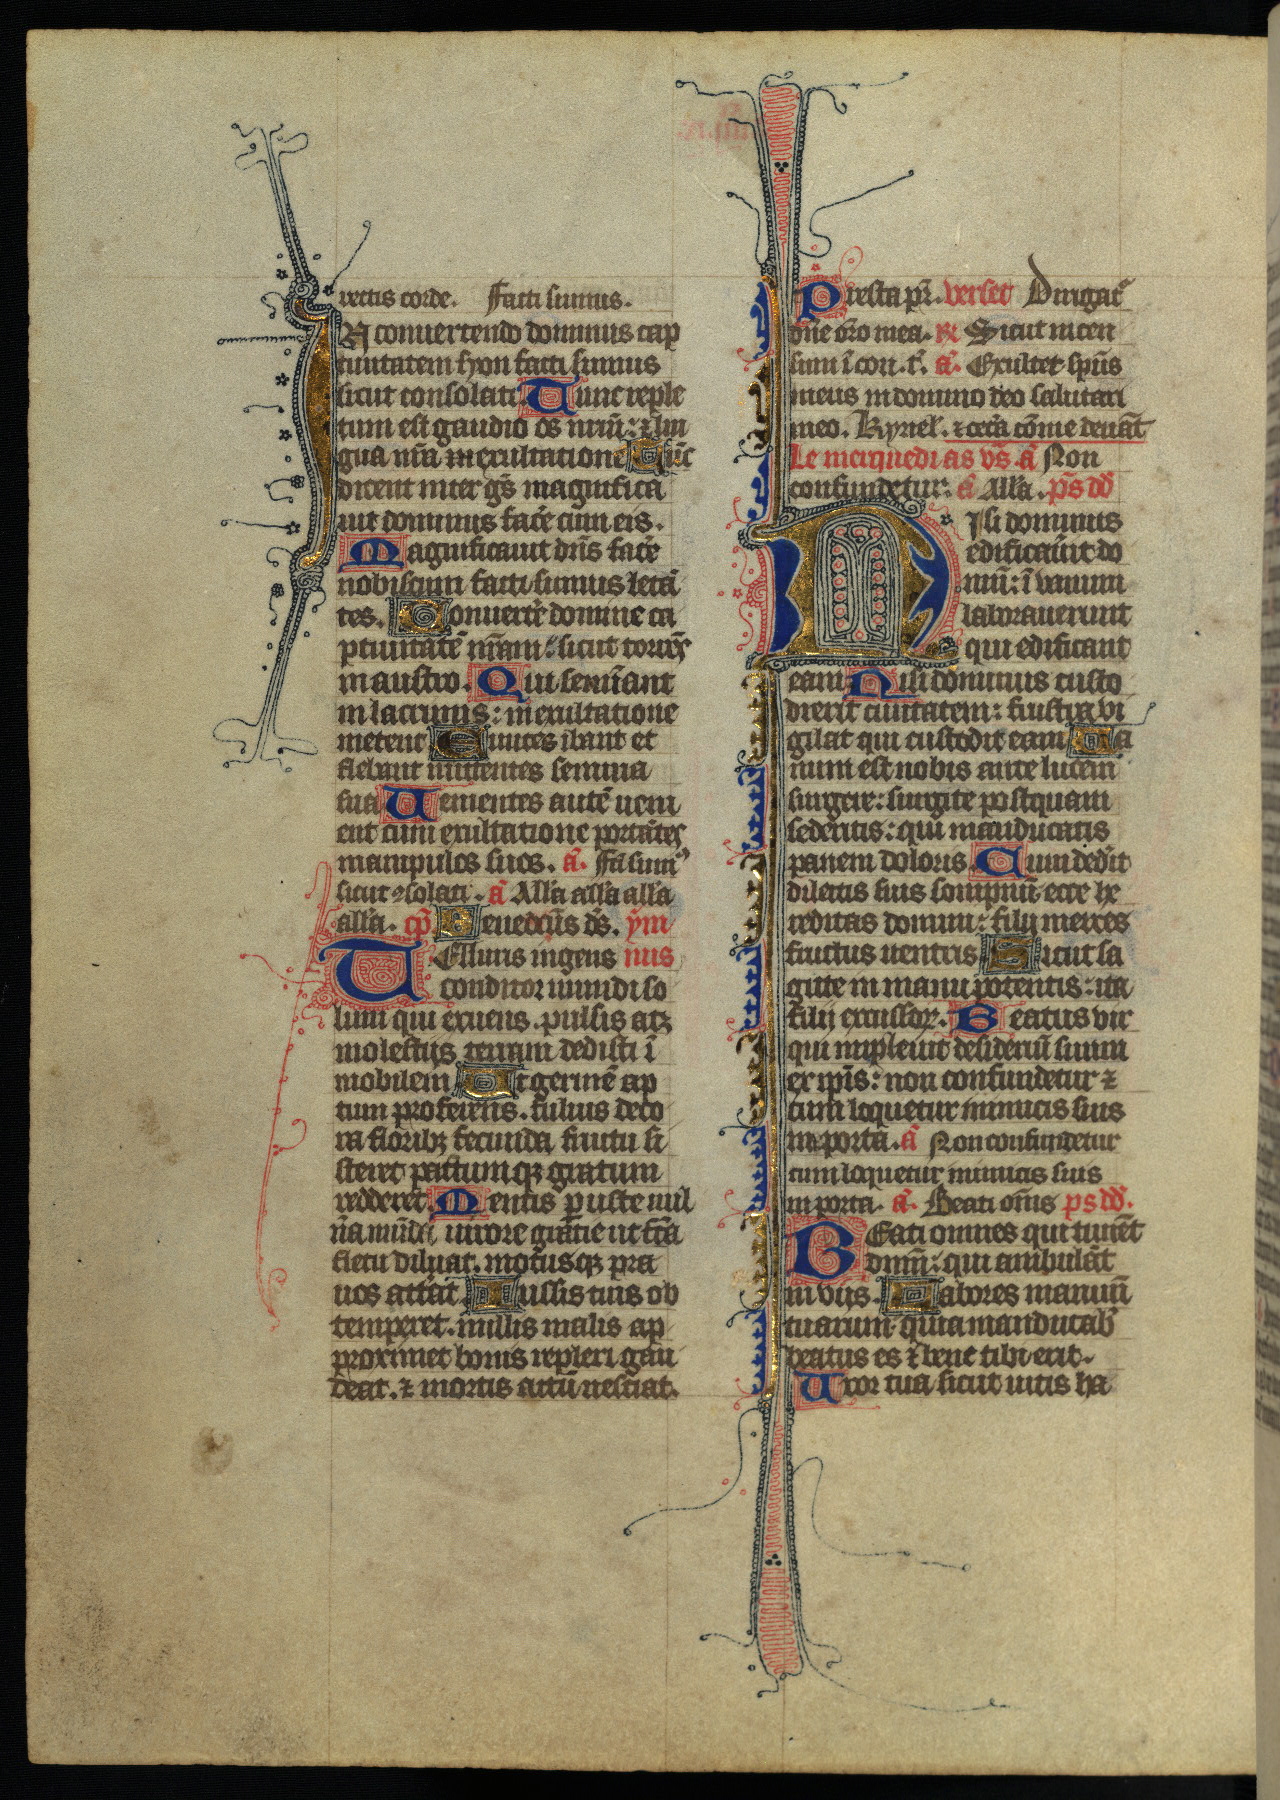 rectis corde. Facti sumus.
In conuertendo dominus cap
tiuitatem syon facti sumus
sicut consolati. Tunc reple
tum est gaudio os nrm̄: ⁊ lin
gua nrā in exultatione Tūc
dicent inter gēs magnifica
uit dominus facē cum eis.
Magnificauit dn̄s facē
nobiscum facti sumus letā
tes. Conuertē domine ca
ptiuitatē nrām: sicut torrēs
in austro. Qui semīant
in lacrimis: in exultatione
metent Euntes ibant et
flebant mittentes semina
sua Uenientes autē ueni
ent cum exultatione portātes
manipulos suos. ā. Facti sumꝰ
sicut ꝯsolati. ā Allā allā allā
allā. cp̄. Benedc̄us ds̄. ym
Telluris ingens nus
conditor mundi so
lum qui eruens. pulsis atꝫ
molestijs terram dedisti ī
mobilem Ut germē ap
tum proferens. fuluis deco
ra floribꝫ fecunda fructu si
steret pastum qꝫ gratum
redderet. Mentis puste uul
na mūda uirore gratie ut fc̄a
fletu diluat. motus qꝫ pra
uos attāt Iussis tuis ob
temperet. nullis malis ap
proximet bonis repleri gau
deat. ⁊ mortis actū nesciat.
Presta pr̄. verset Dirigat̄
dn̄e or̄o mea. ꝶ Sicut incen
sum ī con.t. ā. Exultet sp̄us
meus in domino deo salutari
meo. Kyriel̄. ⁊ cetā cōme deuāt
Le merquedi as vs̄. ā Non
confundetur. ā Allā. ps̄ dd̄
Nisi dominus
edificauīt do
mū: ī vanum
laborauerunt
qui edificant
eam Nisi dominus custo
dierit ciuitatem: frustra vi
gilat qui custodit eam Ua
num est nobis ante lucem
surgere: surgite postquam
sederitis: qui manducatis
panem doloris. Cum ded̄it
dilectis suis sompnū: ecce he
reditas domini: filij merces
fructus uentris Sicut sa
gitte in manu potentis: ita
filij excussoꝝ. Beatus vir
qui impleuit desideriū suum
ex ip̄is: non confundetur ⁊
cum loquetur inimicis suis
in porta. ā Non confundetur
cum loquetur inimicis suis
in porta. ā. Beati om̄s ps dd̄.
Beati omnes qui timēt
dnm̄: qui ambulāt
in viis. Labores manuū
tuarum quia manducab̄
beatus es ⁊ bene tibi erit.
Uxor tua sicut uitis ha